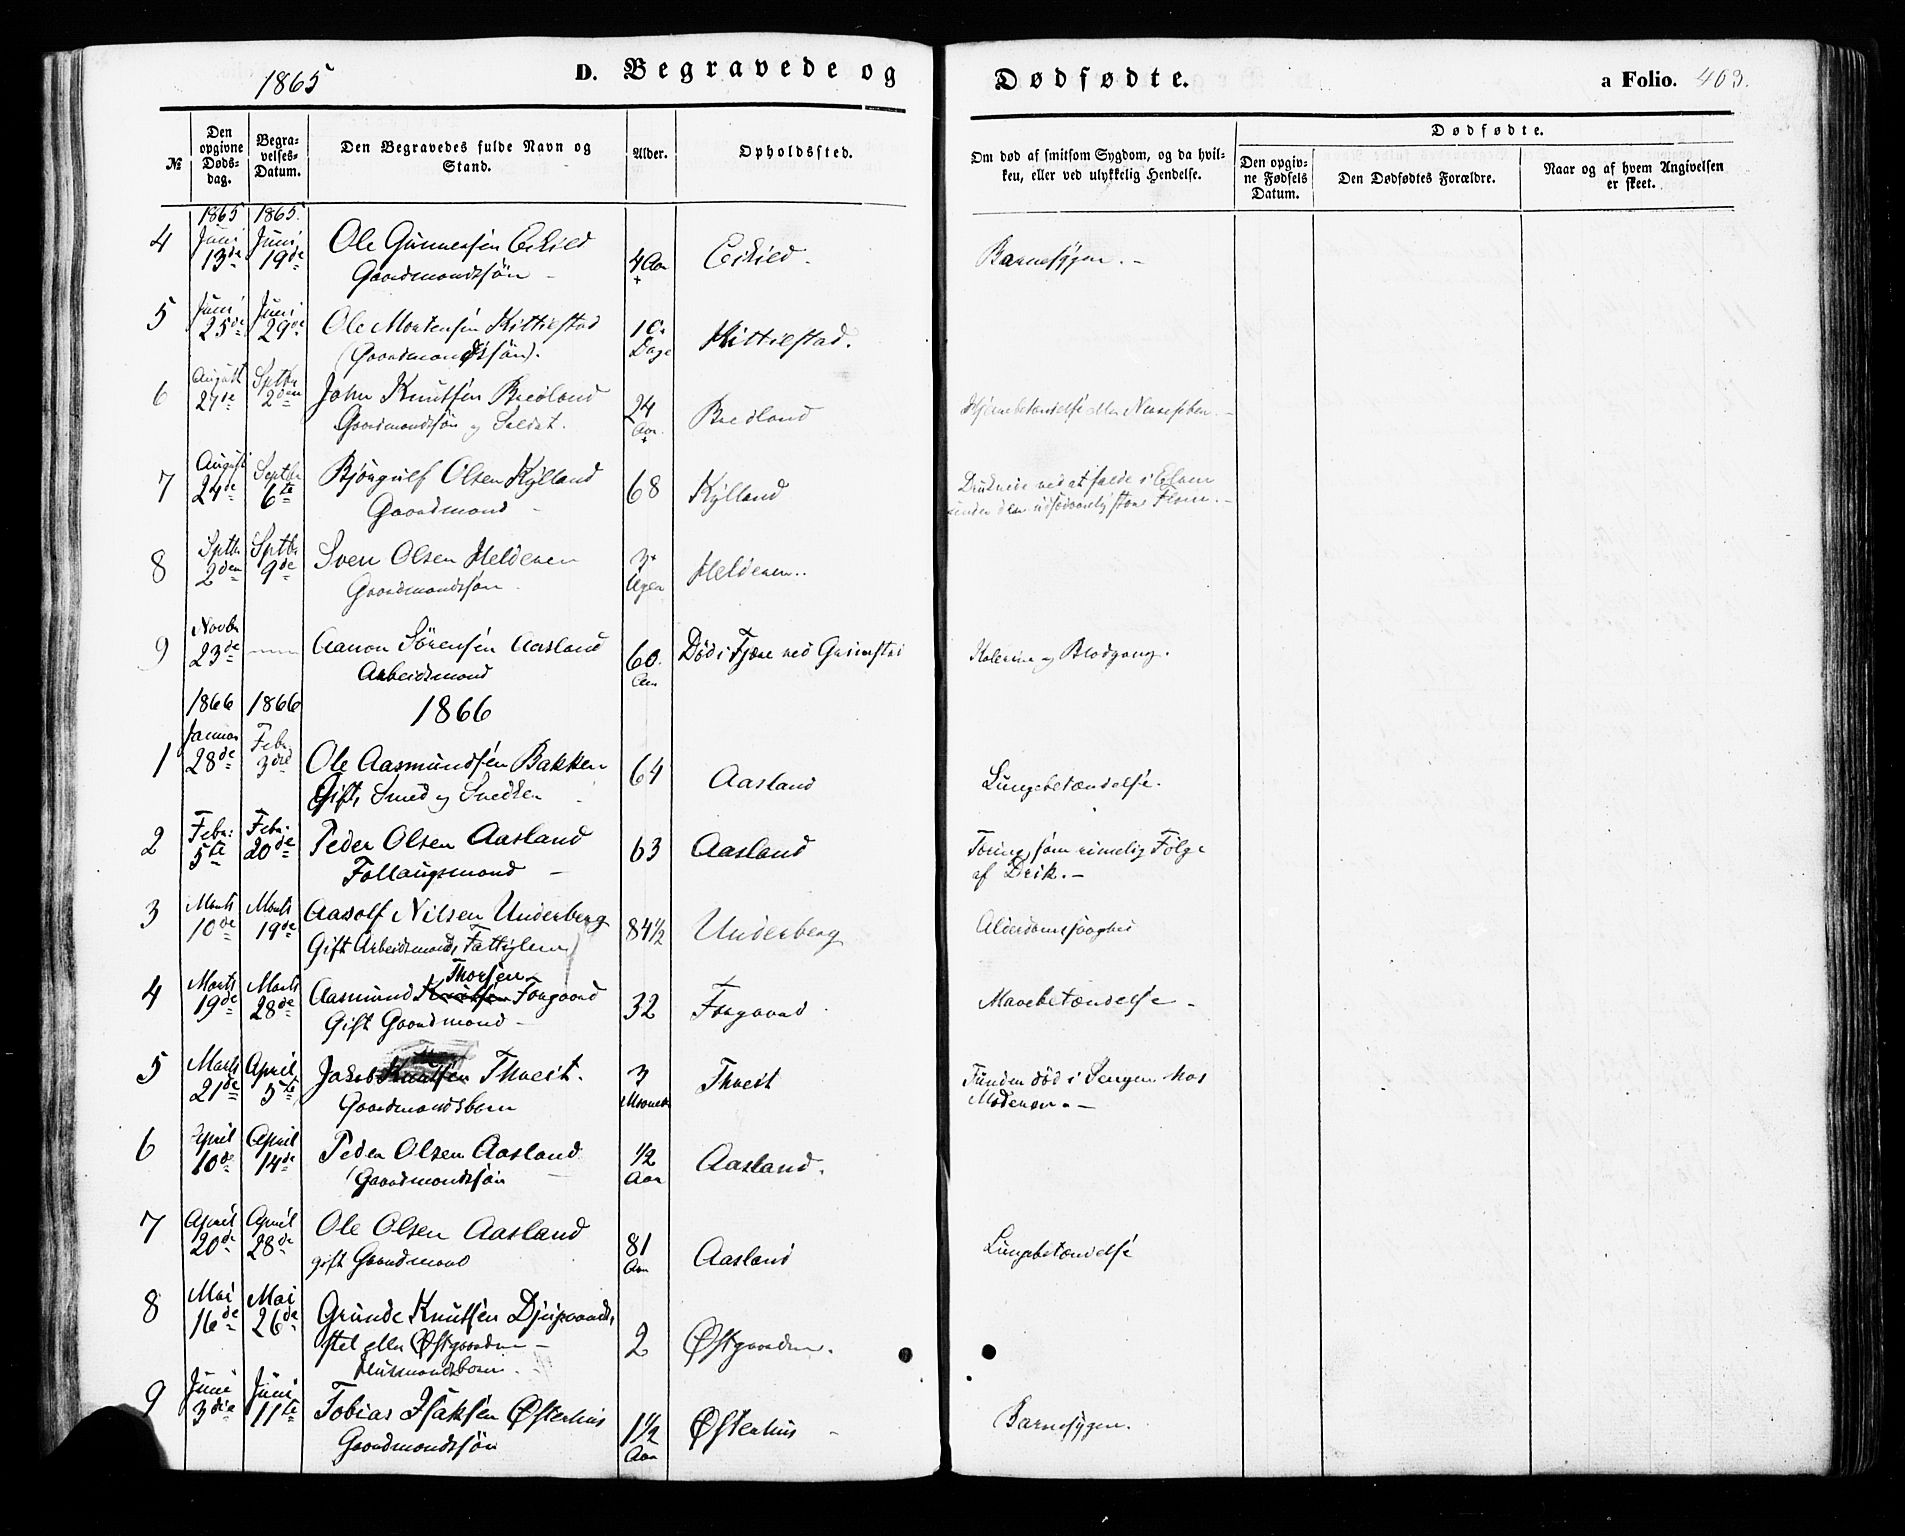 1865
D. Begravede og
Dødfødte.
a Folio. 403.
№
Den opgivne Døds-dag.
Begra-velses-Datum.
Den Begravedes fulde Navn og Stand.
Alder.
Opholdssted.
Om død af smitsom Sygdom, og da hvil-ken, eller ved ulykkelig Hendelse.
Dødfødte.
Den opgiv-ne Fødsels Datum.
Den Dødfødtes Forældre.
Naar og af hvem Angivelsen er skeet.
1865 1865
4 Juni 13de Juni 19de Ole Gunnersøn Eskild 4 Aar Eskild. Barnesygen. -
Gaardmandssøn -
5 Juni 25de Juni 29de Ole Mortensøn Kittilstad 10 Dage Kittilstad.
(Gaardmandssøn).
6 August 27de Septbr 2den John Knutsen Bredland 24 Aar. Bredland Hjernebetændelse eller Nervefeber. -
Gaardmandssøn og Soldat.
7 August 24de Septbr 6te Bjørgulf Olsen Kylland 68 Kylland Druknede ved at falde i Elven
Gaardmand - under den usædvanlig store Flom. -
8 Septbr 2den Septbr 9de Sven Olsen Helderen 3 Uger Helderen..
Gaardmandssøn
9 Novbr 23de Aanon Sørensen Aasland 60 Aar Død i Fjære ved Grimstad Kolerine og Blodgang.
Arbeidsmand
1866 1866 1866
1 Januar 28de Febr. 3die Ole Aasmundsen Bakken 64 Aasland Lungebetændelse.
Gift, Smed og Snedker
2 Febr. 5te Febr. 20de Peder Olsen Aasland 63 Aasland Tæring, som rimelig Følge
Follaugsmand - af Drik. -
3 Marts 10de Marts 19de Aasolf Nilsen Underberg 84½ Underberg Alderdomssvaghed
Gift Arbeidsmand, Fattiglem)
4 Marts 19de Marts 28de Aasmund Knutsen Thorsen Forgaard 32 Forgaard Mavebetændelse -
Gift Gaardmand -
5 Marts 21de April 5te Jakob Knutsen Thveit. 3 Maaneder Thveit Funden død i Sengen hos
Gaardmandsbarn Moderen. -
6 April 10de April 14de Peder Olsen Aasland ½ Aar Aasland.
(Gaardmandssøn
7 April 20de April 28de Ole Olsen Aasland 81 Aar Aasland Lungebetændelse
gift Gaardmand
8 Mai 16de Mai 26de Grunde Knutsen Djupvands,
stel eller Østgaarden - 2 Østgaarden.
Husmandsbarn.
9 Juni 3die Juni 11te Tobias Isaksen Østerhus 1½ Aar Østerhus - Barnesygen.
Gaardmandssøn